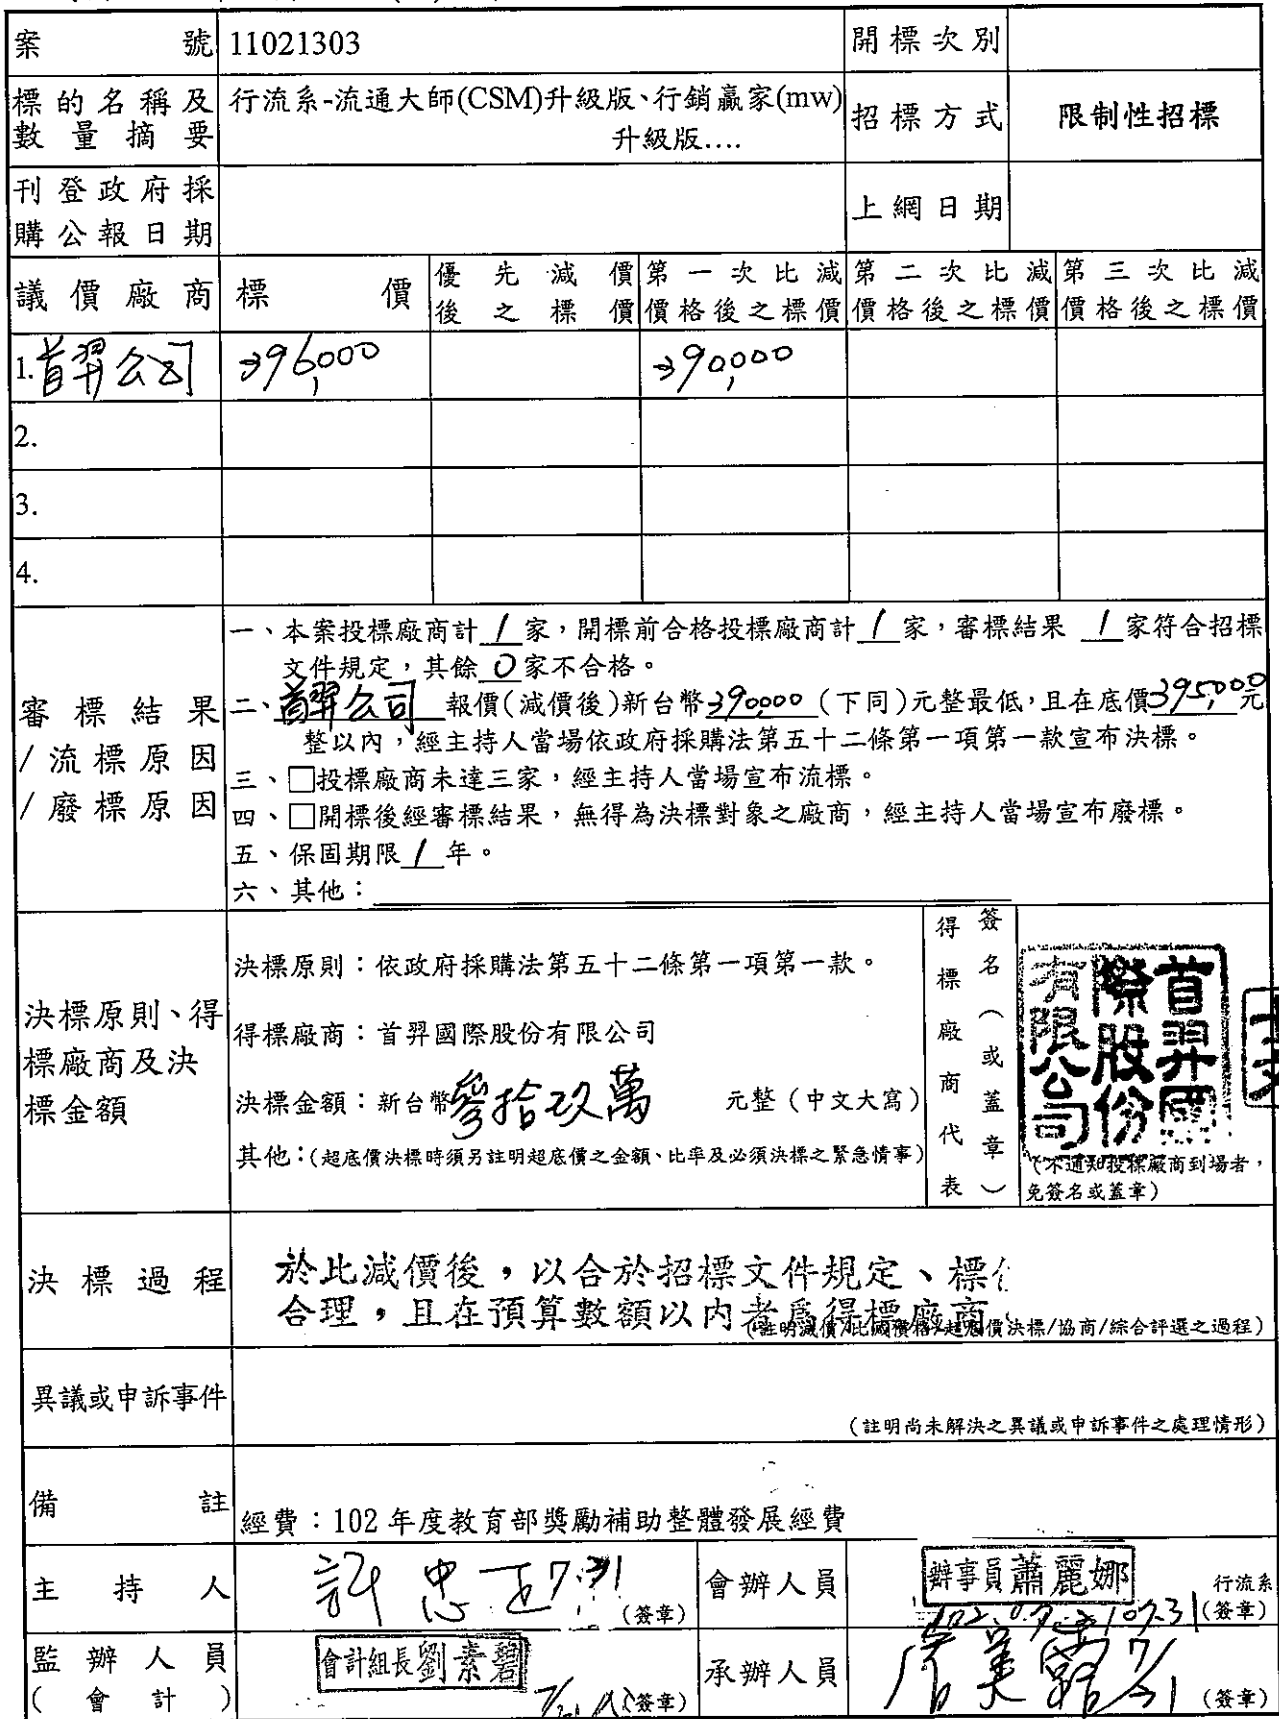 案號 11021303 開標次別
標的名稱及數量摘要 行流系-流通大師(CSM)升級版、行銷贏家(mw)升級版.... 招標方式 限制性招標
刊登政府採購公報日期 上網日期
議價廠商 標價 優先減價後之標價 第一次比減價格後之標價 第二次比減價格後之標價 第三次比減價格後之標價
1. 首羿公司 396,000 390,000
2.
3.
4.
審標結果/流標原因/廢標原因
一、本案投標廠商計 1 家，開標前合格投標廠商計 1 家，審標結果 1 家符合招標
文件規定，其餘 0 家不合格。
二、首羿公司 報價(減價後)新台幣 390000 (下同)元整最低，且在底價 395,000 元
整以內，經主持人當場依政府採購法第五十二條第一項第一款宣布決標。
三、□投標廠商未達三家，經主持人當場宣布流標。
四、□開標後經審標結果，無得為決標對象之廠商，經主持人當場宣布廢標。
五、保固期限 1 年。
六、其他：
決標原則、得標廠商及決標金額
決標原則：依政府採購法第五十二條第一項第一款。
得標廠商：首羿國際股份有限公司
決標金額：新台幣 參拾玖萬 元整（中文大寫）
其他：(超底價決標時須另註明超底價之金額、比率及必須決標之緊急情事)
得標廠商代表簽名（或蓋章）
首羿國際股份有限公司
(不通知投標廠商到場者，
免簽名或蓋章)
決標過程
於比減價後，以合於招標文件規定、標
合理，且在預算數額以內者為得標廠商
(註明減價/比減價格/超底價決標/協商/綜合評選之過程)
異議或申訴事件
(註明尚未解決之異議或申訴事件之處理情形)
備註 經費：102 年度教育部獎勵補助整體發展經費
主持人 許忠 7.31 (簽章) 會辦人員 辦事員蕭麗娜 行流系 (簽章)
監辦人員(會計) 會計組長劉素碧 (簽章) 承辦人員 7/31 (簽章)